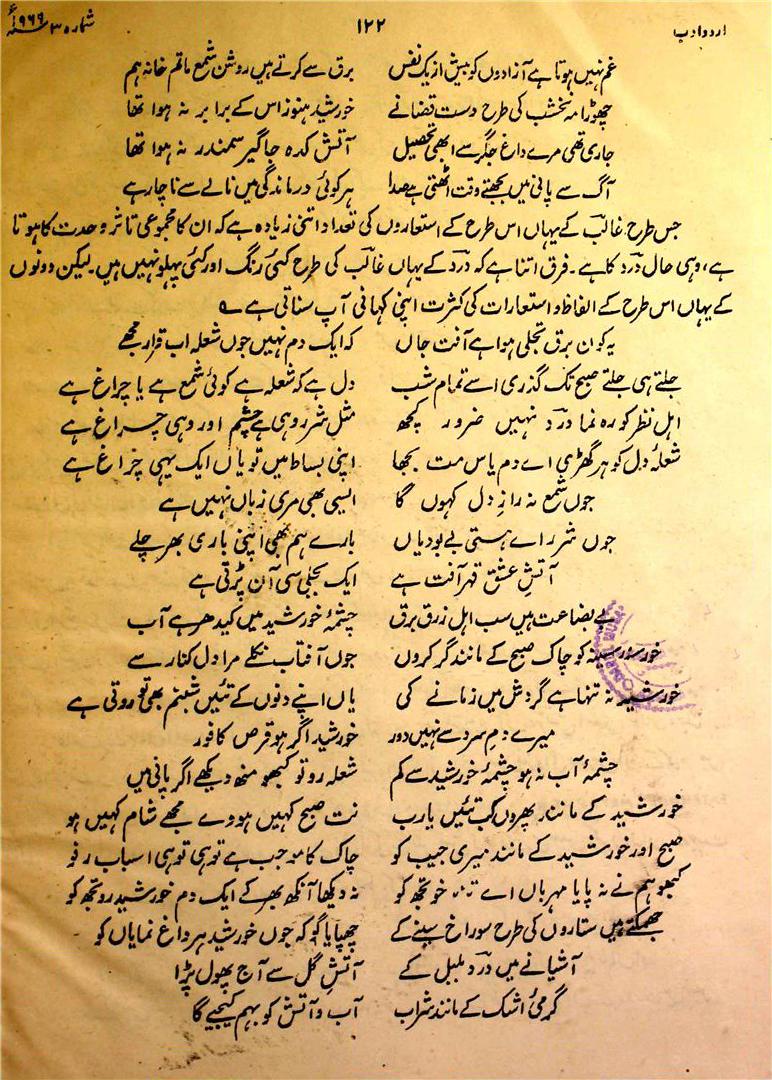 اردو ادب ۱۲۲ شمارہ ۳ سنہ ۱۹۶۹ء
غم نہیں ہوتا ہے آزادوں کو بیش از یک نفس برق سے کرتے ہیں روشن شمع ماتم خانہ ہم
چھوڑا مہ نخشب کی طرح دست قضا نے خورشید ہنوز اس کے برابر نہ ہوا تھا
جاری تھی مرے داغ جگر سے ابھی تحصیل آتش کدہ جاگیر سمندر نہ ہوا تھا
آگ سے پانی میں بجھتے وقت اٹھتی ہے صدا ہر کوئی درماندگی میں نالے سے ناچار ہے
جس طرح غالب کے یہاں اس طرح کے استعاروں کی تعداد اتنی زیادہ ہے کہ ان کا مجموعی تاثر وحدت کا ہوتا
ہے، وہی حال درد کا ہے۔ فرق اتنا ہے کہ درد کے یہاں غالب کی طرح کئی رنگ اور کئی پہلو نہیں ہیں۔ لیکن دونوں
کے یہاں اس طرح کے الفاظ و استعارات کی کثرت اپنی کہانی آپ سناتی ہے ؎
یہ کون برق تجلی ہوا ہے آفت جاں کہ ایک دم نہیں جوں شعلہ اب قرار مجھے
جلتے ہی جلتے صبح تک گذری اسے تمام شب دل ہے کہ شعلہ ہے کوئی شمع ہے یا چراغ ہے
اہل نظر کو رہ نما درد نہیں ضرور کچھ مثل شرر وہی ہے چشم اور وہی چراغ ہے
شعلۂ دل کو ہر گھڑی اے دم یاس مت بجھا اپنی بساط میں تو یاں ایک یہی چراغ ہے
جوں شمع نہ راز دل کہوں گا ایسی بھی مری زباں نہیں ہے
جوں شرر اے ہستی بے بود یاں بارے ہم بھی اپنی باری بھر چلے
آتشِ عشق قہر آفت ہے ایک بجلی سی آن پڑتی ہے
بے بضاعت ہیں سب اہل زرق برق چشمۂ خورشید میں کیدھر ہے آب
سینہ کو چاک صبح کے مانند گر کروں جوں آفتاب نکلے مرا دل کنار سے
خورشید نہ تنہا ہے گردش میں زمانے کی یاں اپنے دنوں کے تئیں شبنم بھی تو روتی ہے
میرے دمِ سرد سے نہیں دور خورشید اگر ہو قرص کافور
چشمۂ آب نہ ہو چشمۂ خورشید سے کم شعلہ رو تو کبھو منھ دیکھے اگر پانی میں
خورشید کے مانند پھروں کب تئیں یارب نت صبح کہیں ہووے مجھے شام کہیں ہو
صبح اور خورشید کے مانند میری جیب کو چاک کا موجب ہے تو ہی تو ہی اسباب رفو
کبھو ہم نے نہ پایا مہرباں اے خو تجھ کو نہ دیکھا آنکھ بھر کے ایک دم خورشید رو تجھ کو
جھمکتے ہیں ستاروں کی طرح سوراخ سینے کے چھپایا گو کہ جوں خورشید ہر داغ نمایاں کو
آشیانے میں درد بلبل کے آتشِ گل سے آج پھول پڑا
گرمیٔ اشک کے مانند شراب آب و آتش کو بہم کیجیے گا